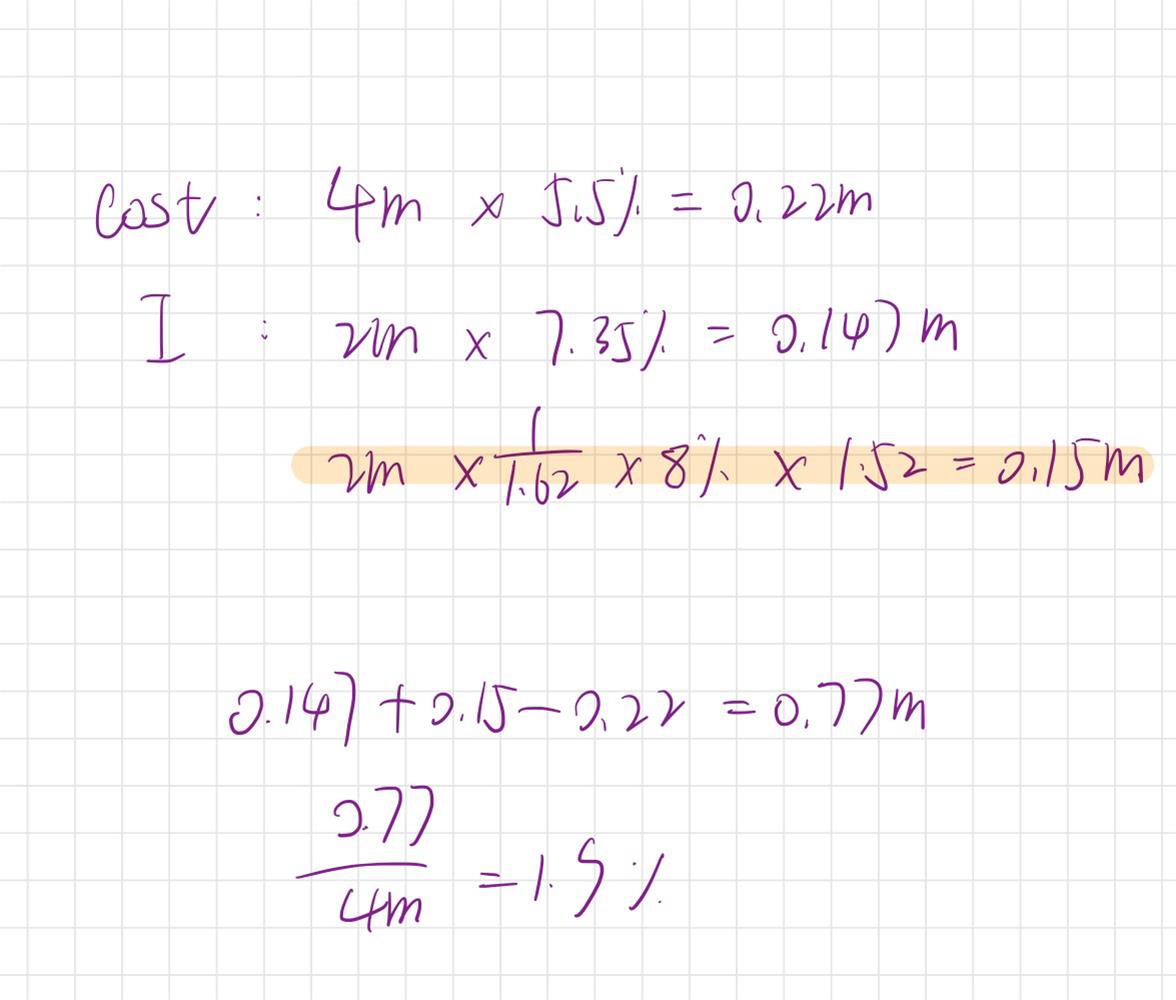 Cost : 4m × 5.5% = 0.22m
I : 2m × 7.35% = 0.147m
2m × 1/1.62 × 8% × 1.52 = 0.15m
0.147 + 0.15 - 0.22 = 0.77m
0.77/4m = 1.9%